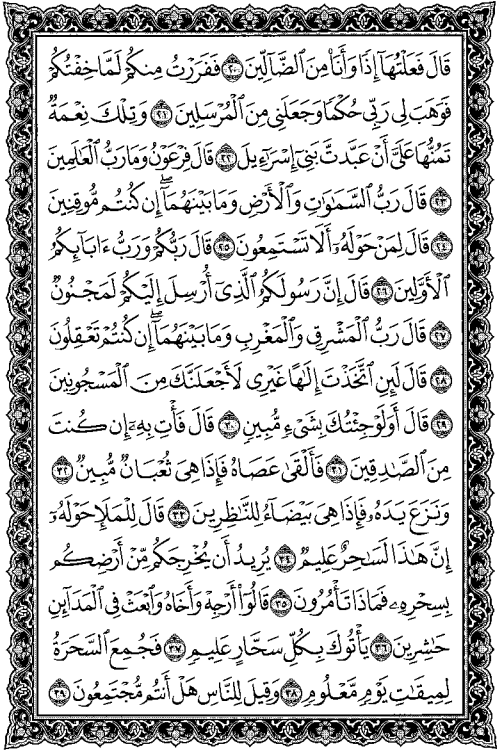 قَالَ فَعَلْتُهَا إِذًا وَأَنَا۠ مِنَ ٱلضَّآلِّينَ ٢٠ فَفَرَرْتُ مِنكُمْ لَمَّا خِفْتُكُمْ
فَوَهَبَ لِى رَبِّى حُكْمًا وَجَعَلَنِى مِنَ ٱلْمُرْسَلِينَ ٢١ وَتِلْكَ نِعْمَةٌ
تَمُنُّهَا عَلَىَّ أَنْ عَبَّدتَّ بَنِىٓ إِسْرَٰٓءِيلَ ٢٢ قَالَ فِرْعَوْنُ وَمَا رَبُّ ٱلْعَٰلَمِينَ
٢٣ قَالَ رَبُّ ٱلسَّمَٰوَٰتِ وَٱلْأَرْضِ وَمَا بَيْنَهُمَآ ۖ إِن كُنتُم مُّوقِنِينَ
٢٤ قَالَ لِمَنْ حَوْلَهُۥٓ أَلَا تَسْتَمِعُونَ ٢٥ قَالَ رَبُّكُمْ وَرَبُّ ءَابَآئِكُمُ
ٱلْأَوَّلِينَ ٢٦ قَالَ إِنَّ رَسُولَكُمُ ٱلَّذِىٓ أُرْسِلَ إِلَيْكُمْ لَمَجْنُونٌ
٢٧ قَالَ رَبُّ ٱلْمَشْرِقِ وَٱلْمَغْرِبِ وَمَا بَيْنَهُمَآ ۖ إِن كُنتُمْ تَعْقِلُونَ
٢٨ قَالَ لَئِنِ ٱتَّخَذْتَ إِلَٰهًا غَيْرِى لَأَجْعَلَنَّكَ مِنَ ٱلْمَسْجُونِينَ
٢٩ قَالَ أَوَلَوْ جِئْتُكَ بِشَىْءٍ مُّبِينٍ ٣٠ قَالَ فَأْتِ بِهِۦٓ إِن كُنتَ
مِنَ ٱلصَّٰدِقِينَ ٣١ فَأَلْقَىٰ عَصَاهُ فَإِذَا هِىَ ثُعْبَانٌ مُّبِينٌ ٣٢
وَنَزَعَ يَدَهُۥ فَإِذَا هِىَ بَيْضَآءُ لِلنَّٰظِرِينَ ٣٣ قَالَ لِلْمَلَإِ حَوْلَهُۥٓ
إِنَّ هَٰذَا لَسَٰحِرٌ عَلِيمٌ ٣٤ يُرِيدُ أَن يُخْرِجَكُم مِّنْ أَرْضِكُم
بِسِحْرِهِۦ فَمَاذَا تَأْمُرُونَ ٣٥ قَالُوٓا۟ أَرْجِهْ وَأَخَاهُ وَٱبْعَثْ فِى ٱلْمَدَآئِنِ
حَٰشِرِينَ ٣٦ يَأْتُوكَ بِكُلِّ سَحَّارٍ عَلِيمٍ ٣٧ فَجُمِعَ ٱلسَّحَرَةُ
لِمِيقَٰتِ يَوْمٍ مَّعْلُومٍ ٣٨ وَقِيلَ لِلنَّاسِ هَلْ أَنتُم مُّجْتَمِعُونَ ٣٩